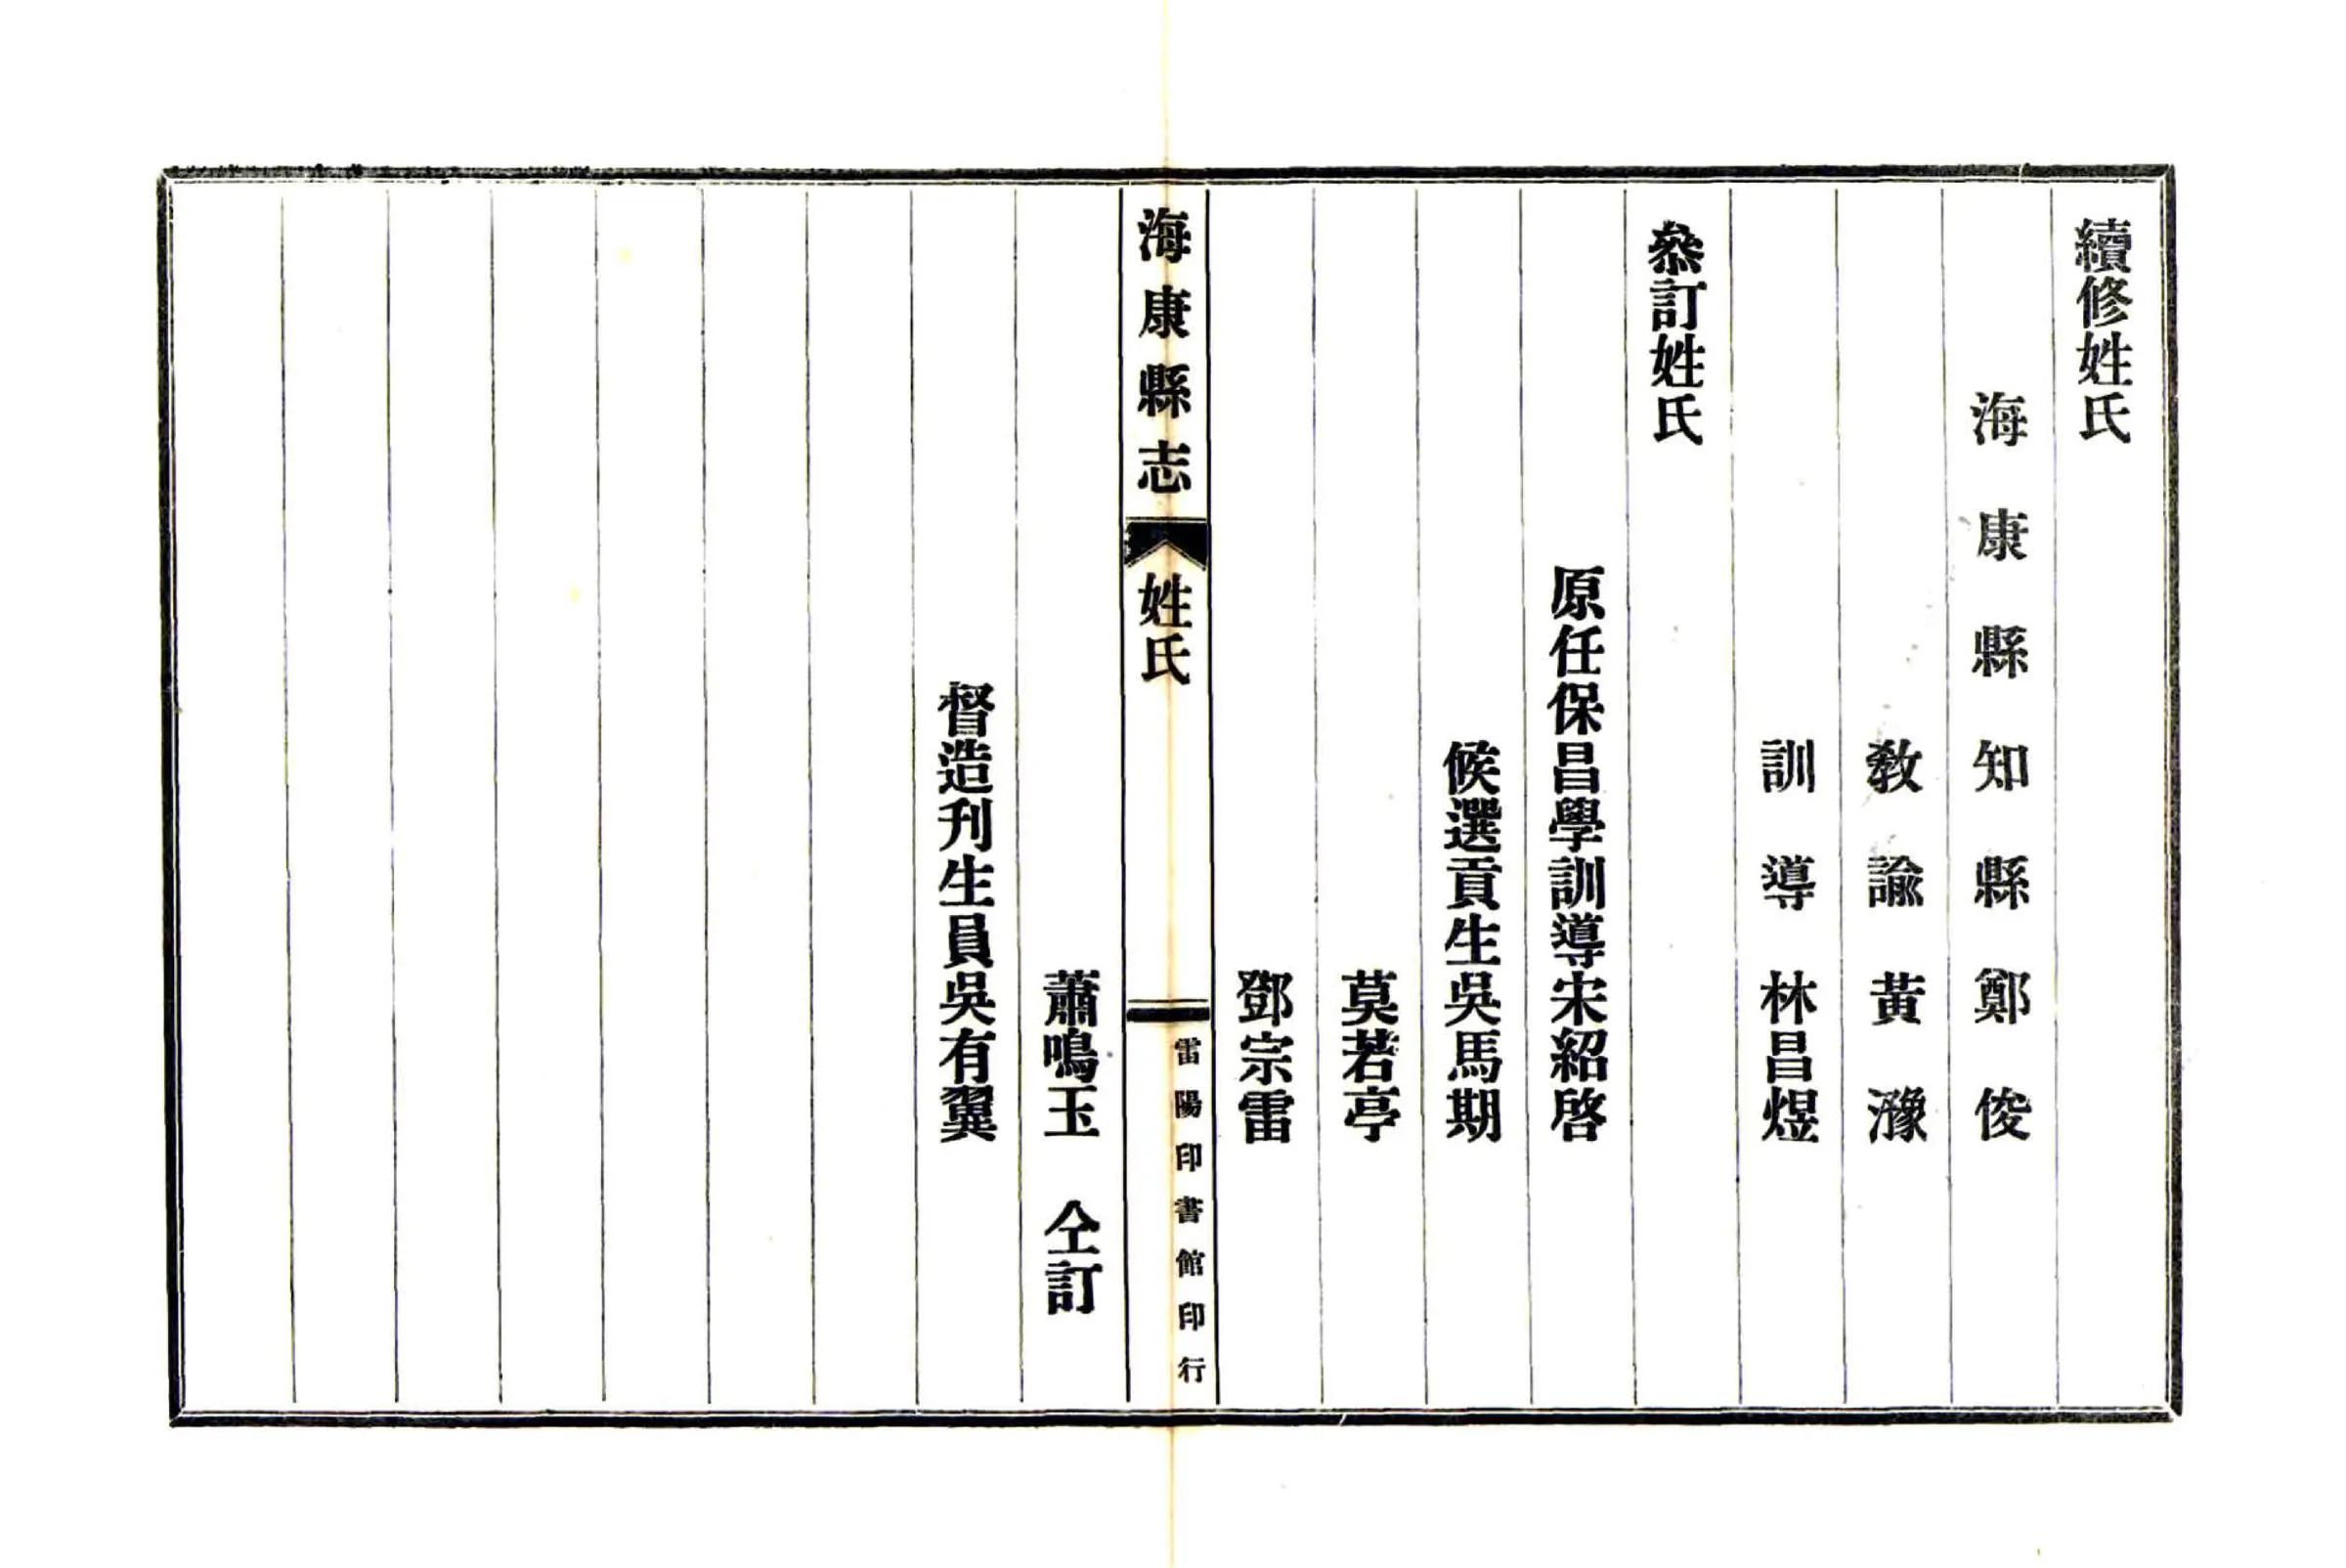 續修姓氏
海康縣知縣鄭俊
教諭黃㵧
訓導林昌煜
叅訂姓氏
原任保昌學訓導宋紹啓
候選貢生吳馬期
莫若亭
鄧宗雷
海康縣志 姓氏 雷陽印書館印行
蕭鳴玉 仝訂
督造刋生員吳有翼